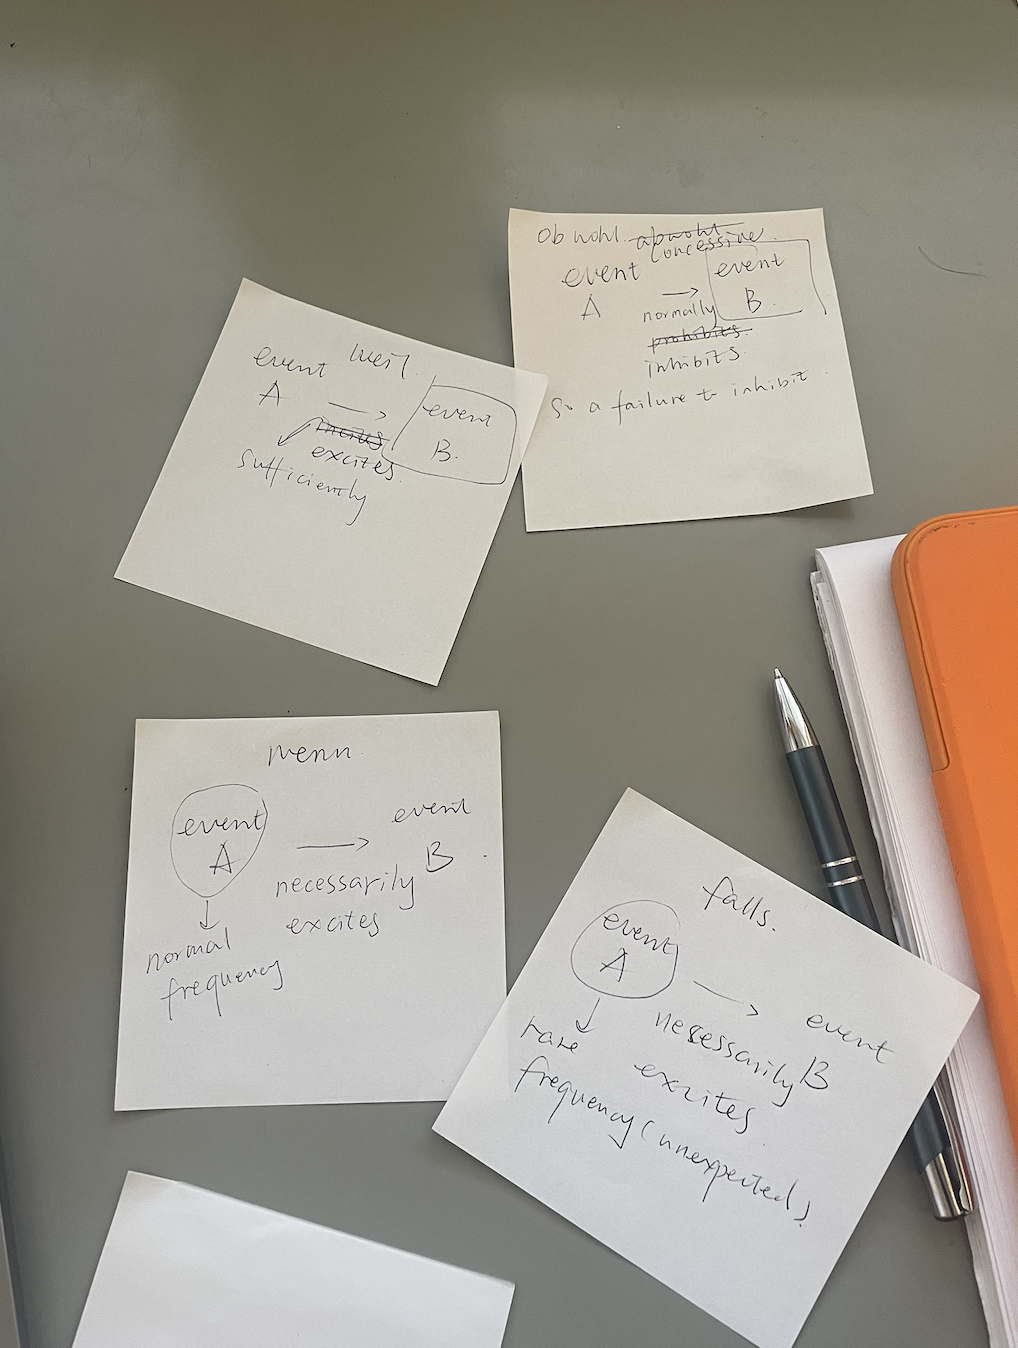 weil.
event
A
event
B.
excites.
sufficiently
obwohl.
concessive.
event
A
event
B.
normally
prohibits.
inhibits.
So a failure to inhibit.
wenn
event
A
event
B
necessarily
excites
normal
frequency
falls.
event
A
event
B
necessarily
excites.
rare
frequency (unexpected).